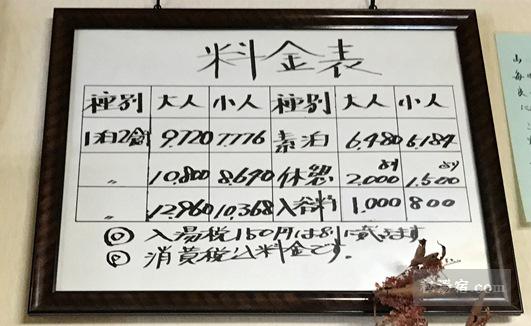 料金表
種別 大人 小人 種別 大人 小人
1泊2食 9,720 7,776 素泊 6,480 5,184
〃 10,800 8,640 休憩 2,000より 1,500より
〃 12,960 10,368 入浴料 1,000 800
◎ 入湯税150円は別に頂きます
◎ 消費税込料金です。